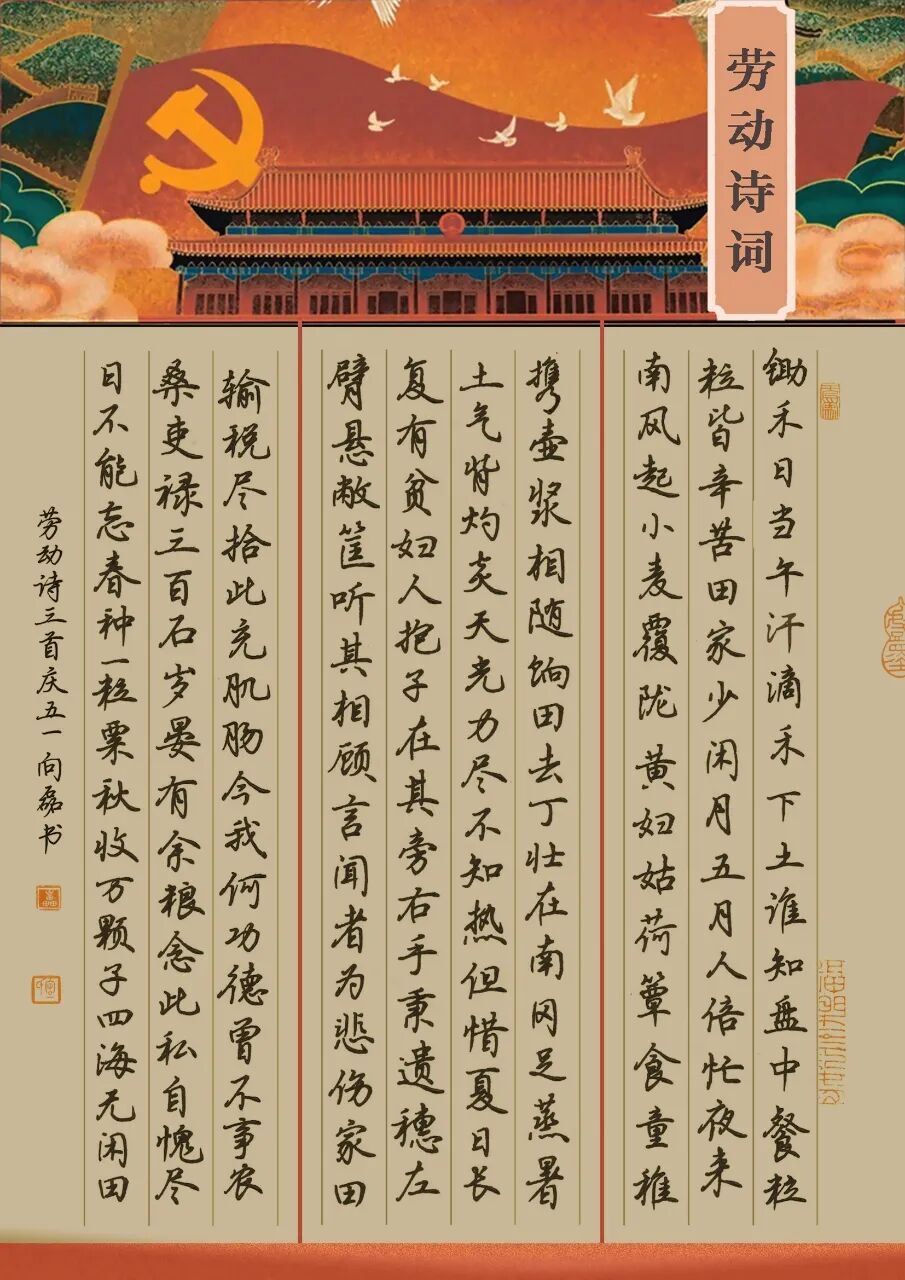 劳动诗词
锄禾日当午汗滴禾下土谁知盘中餐粒
粒皆辛苦田家少闲月五月人倍忙夜来
南风起小麦覆陇黄妇姑荷箪食童稚
携壶浆相随饷田去丁壮在南冈足蒸暑
土气背灼炎天光力尽不知热但惜夏日长
复有贫妇人抱子在其旁右手秉遗穗左
臂悬敝筐听其相顾言闻者为悲伤家田
输税尽拾此充肌肠今我何功德曾不事农
桑吏禄三百石岁晏有余粮念此私自愧尽
日不能忘春种一粒粟秋收万颗子四海无闲田
劳动诗三首庆五一向磊书